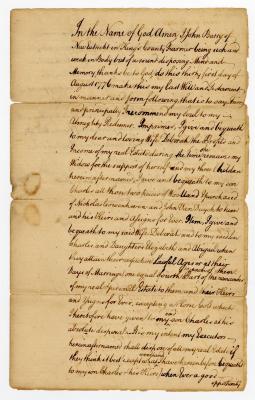 In the Name of God Amen I John Barry of
New Utrecht in Kings County Farmer being sick and
weak in Body but of a sound disposing Mind and
Memory thanks be to God do this thirty first day of
August 1776 make this my last Will and Testament
in manner and form following that is to say, First
and principally I recommend my Soul to my
Almighty Redeemer. Imprimis, I give and bequeath
to my dear and loving Wife Deborah the Profits and
Income of my real Estate during the time remains my
Widow for the support of herself and my three Children
herein after named, I give and bequeath to my son
Charles all those two pieces of Wood Land I purchased
of Nicholas Cowenhoven and John
and his Heirs and Assigns for Ever. Item, I give and
bequeath to my said Wife Deborah and to my children
Charles and Daughters Elizabeth and Abigail when
they attain their respective Lawful Ages or at they
Days of Marriage one equal fourth Part of the remainder
of my real & personal Estate to them and their Heirs
and Assigns for Ever, excepting a Horse Colt which
I heretofore have given to my son Charles at his
absolute disposal. It is my intent my Executors
herein after named shall dispose of all my real Estate if
they think it best except what I have herein before bequeath
to my son Charles & his Heirs when Ever a good
oppertunity